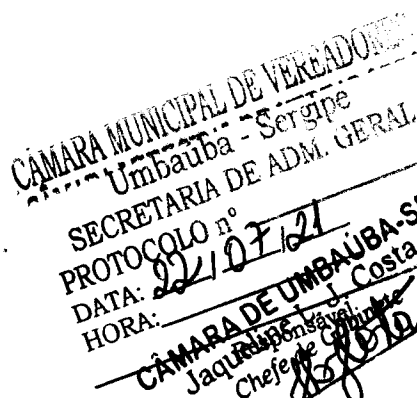 CÂMARA MUNICIPAL DE VEREADORES
Umbaúba - Sergipe
SECRETARIA DE ADM. GERAL
PROTOCOLO nº
DATA: 22/07/21
HORA:
CÂMARA DE UMBAÚBA-S
Responsável
J. Costa
Chefe de Gabinete